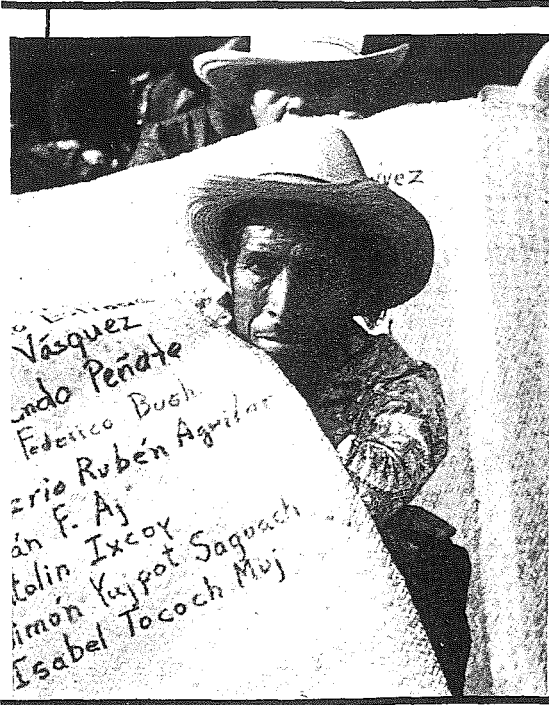 Vásquez
ndo Peñate
Federico Bush
erio Rubén Aguilar
án F. Aj
tolin Ixcoy
Simón Yujpot Saquach
Isabel Tococh Muj
vez